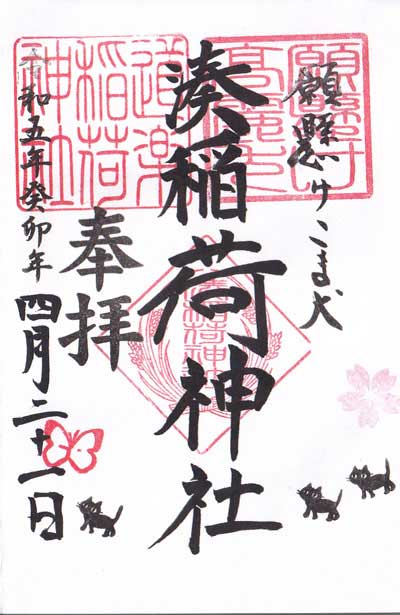 願懸けこま犬
湊稲荷神社
奉拝
令和五年癸卯年四月二十一日
願懸け
高麗犬
道楽
稲荷
神社
湊稲荷神社